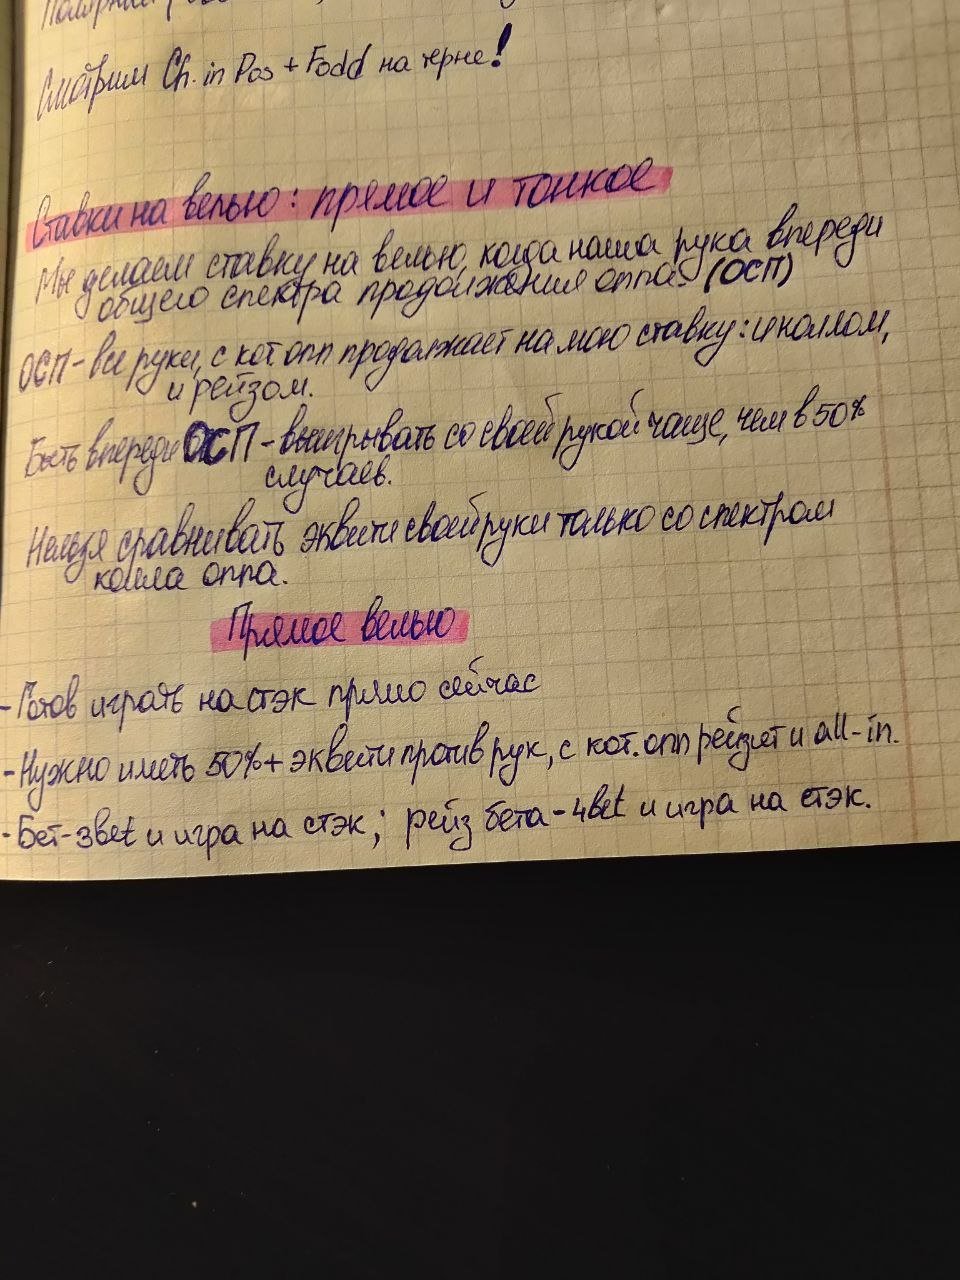 Смотрим Ch. in Pos + Fodd на терне!
Ставки на велью: прямое и тонкое
Мы делаем ставку на велью, когда наша рука впереди
общего спектра продолжения оппа. (ОСП)
ОСП - все руки, с кот. опп продолжает на мою ставку: и коллом,
и рейзом.
Быть впереди ОСП - выигрывать со своей рукой чаще, чем в 50%
случаев.
Нельзя сравнивать эквити своей руки только со спектром
колла оппа.
Прямое велью
- Готов играть на стэк прямо сейчас
- Нужно иметь 50%+ эквити против рук, с кот. опп рейзит и all-in.
- Бет-3bet и игра на стэк; рейз бета - 4bet и игра на стэк.